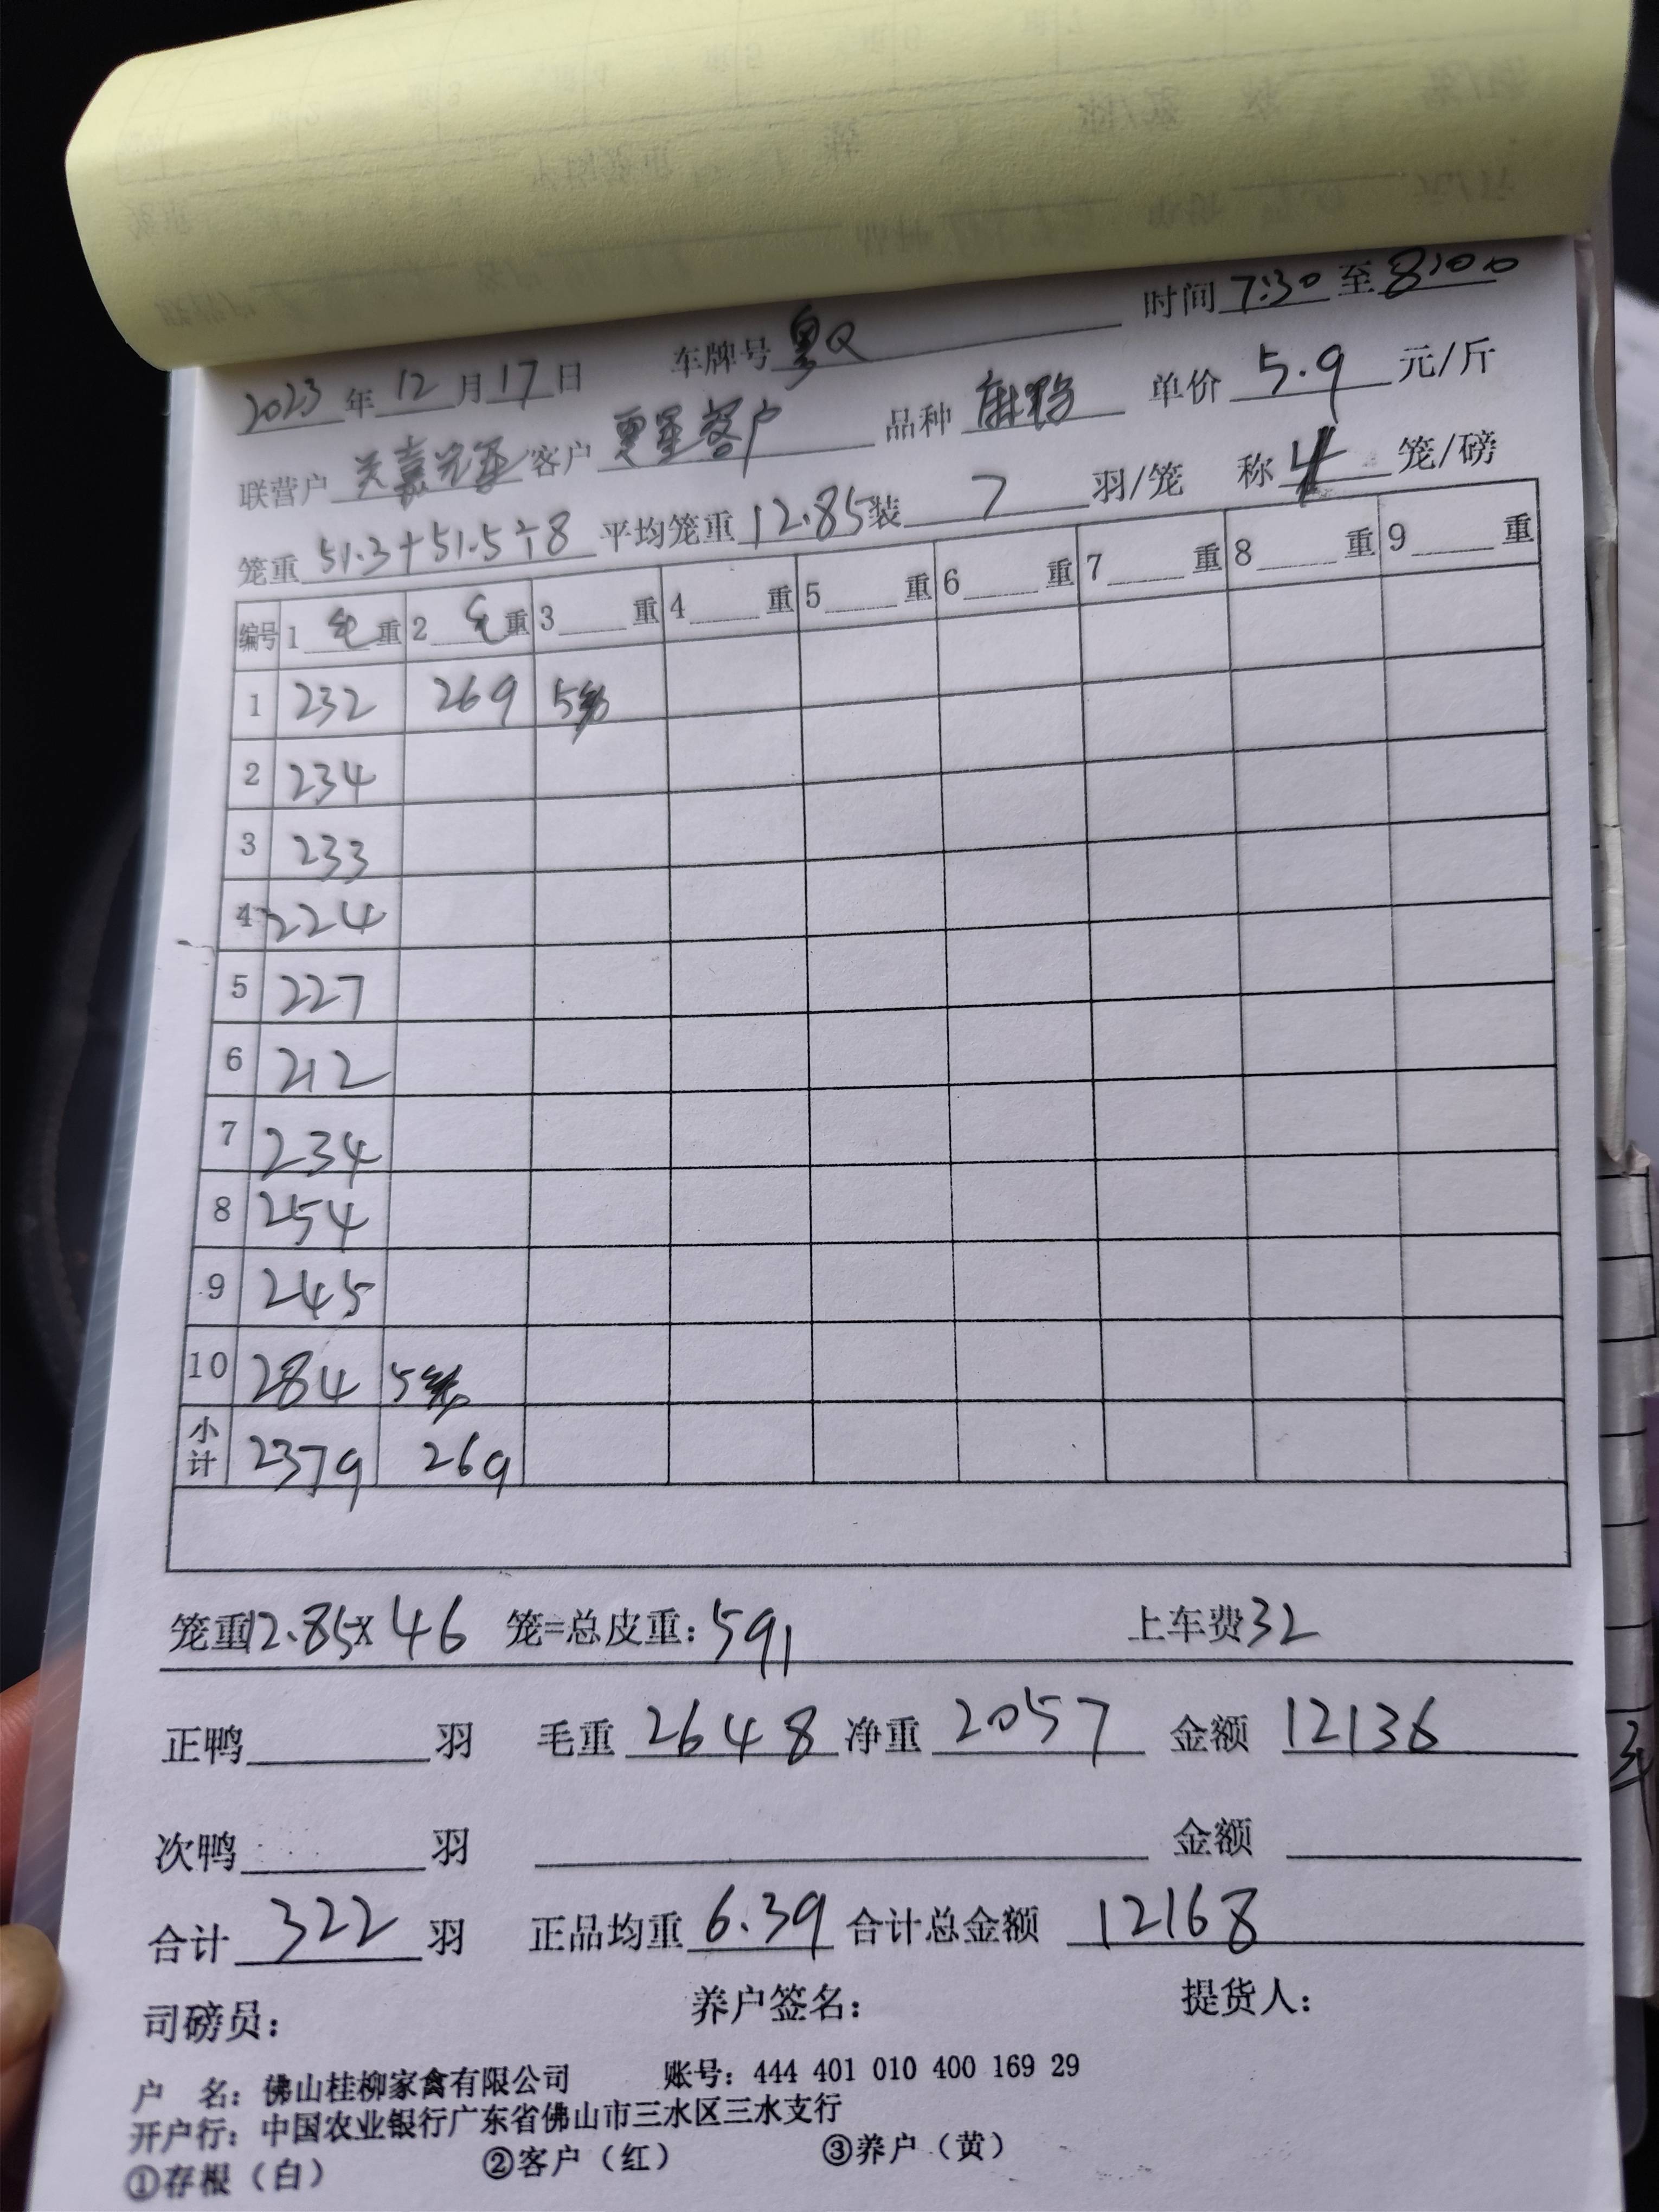 时间 7:30 至 8:00
2023 年 12 月 17 日 车牌号 粤Q
联营户 客户 客户 品种 单价 5.9 元/斤
笼重 51.3+51.5÷8 平均笼重 12.85 装 7 羽/笼 称 4 笼/磅
编号 1 毛 重 2 毛 重 3 重 4 重 5 重 6 重 7 重 8 重 9 重
1 232 269 5笼
2 234
3 233
4 224
5 227
6 212
7 234
8 254
9 245
10 284 5笼
小计 2379 269
笼重 12.85× 46 笼=总皮重: 591 上车费 32
正鸭 羽 毛重 2648 净重 2057 金额 12136
次鸭 羽 金额
合计 322 羽 正品均重 6.39 合计总金额 12168
司磅员: 养户签名: 提货人:
户 名: 佛山桂柳家禽有限公司 账号: 444 401 010 400 169 29
开户行: 中国农业银行广东省佛山市三水区三水支行
①存根(白) ②客户(红) ③养户(黄)